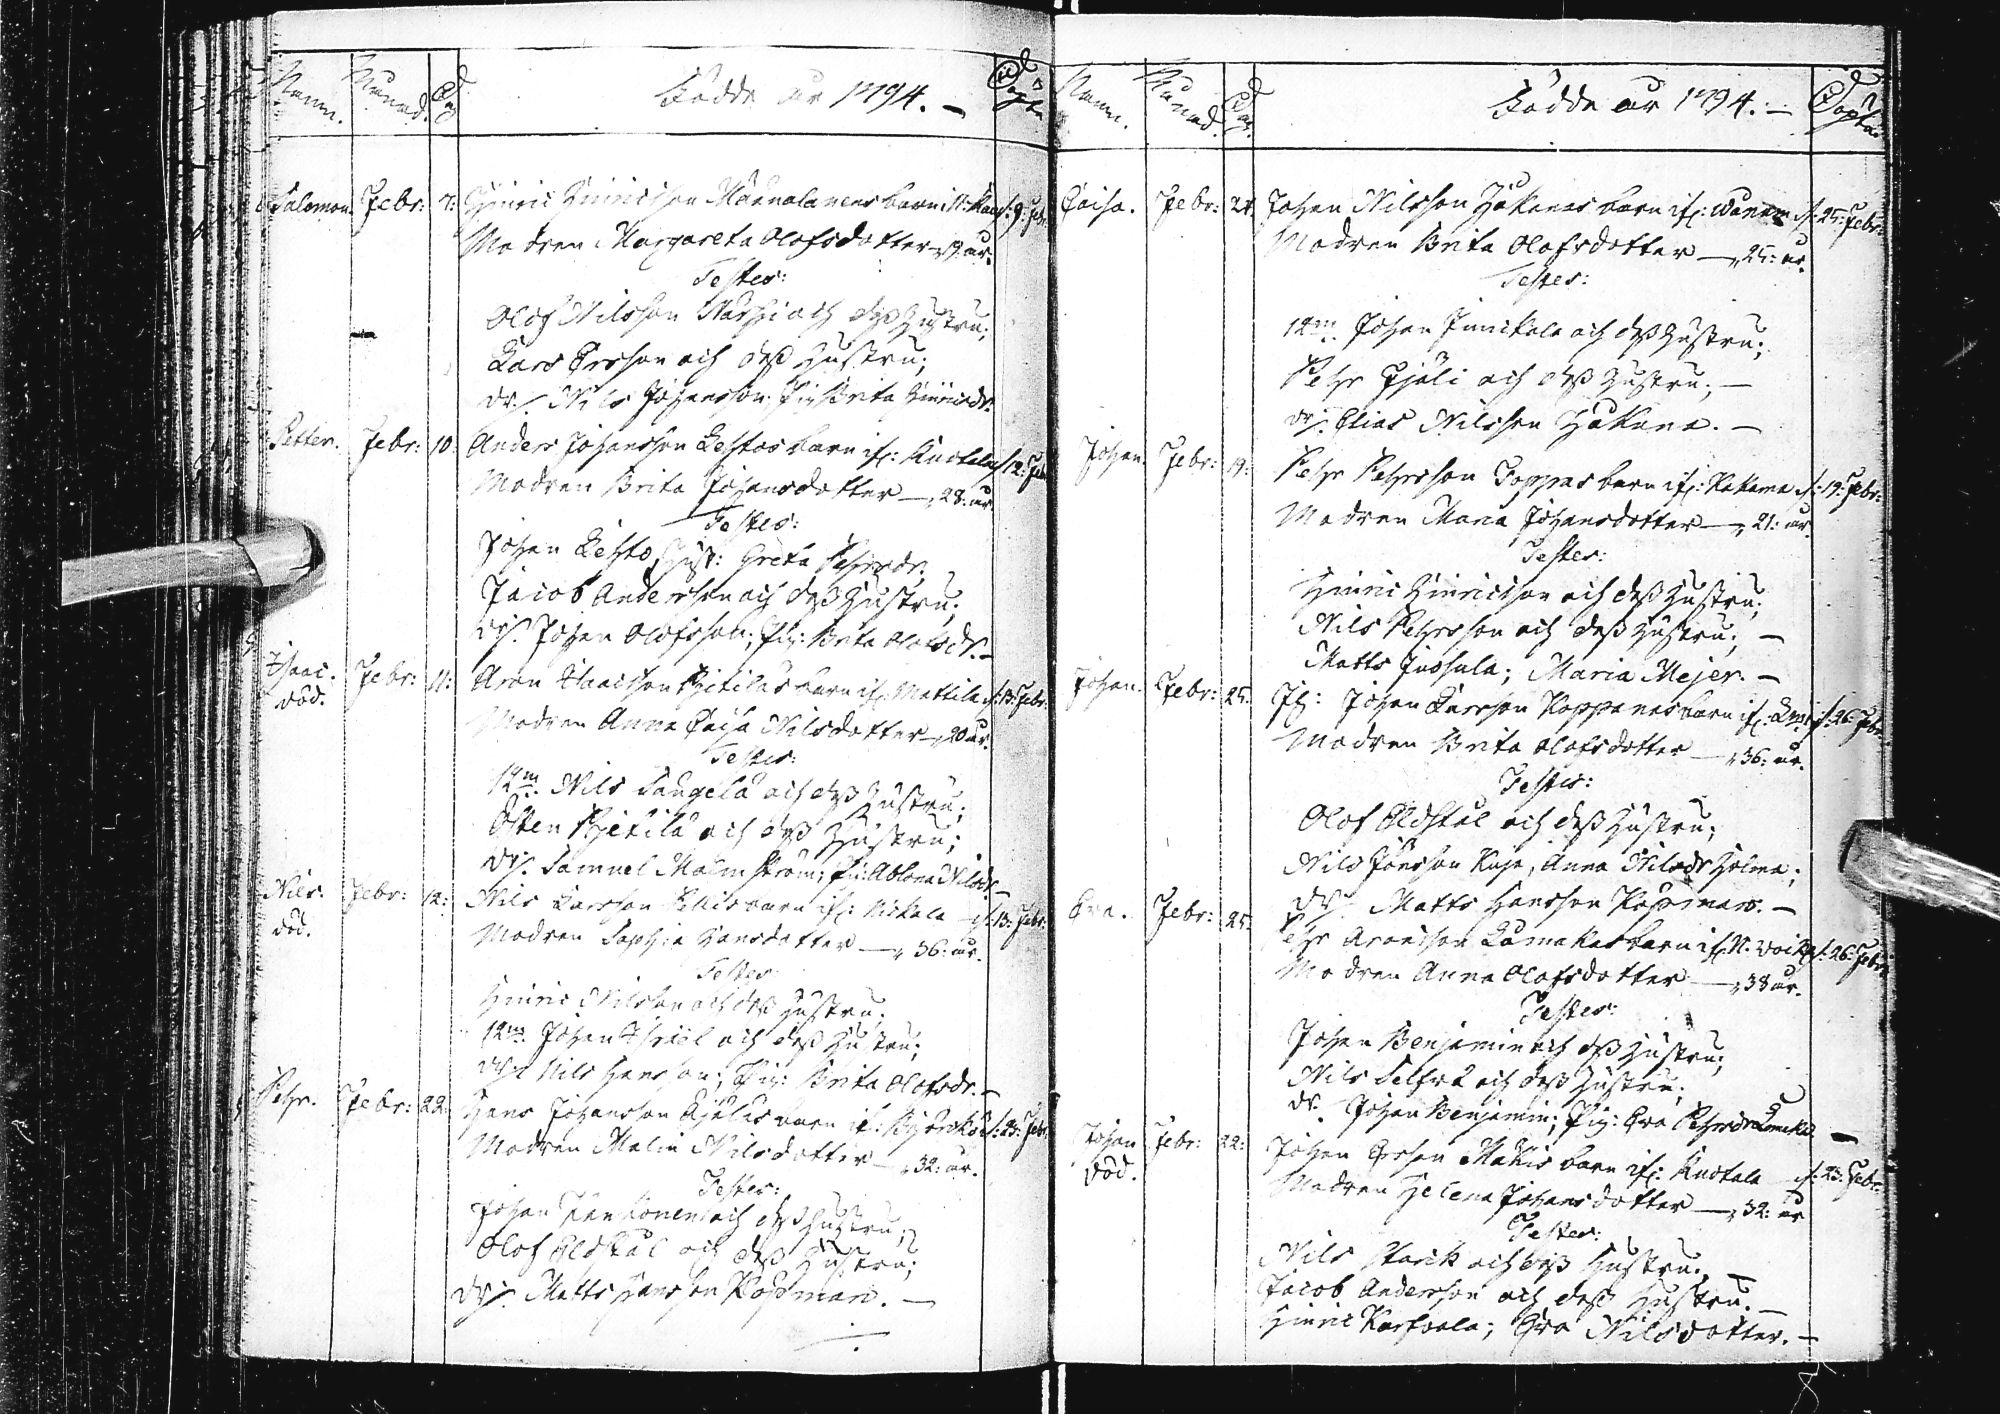 Namn. Månad. Dag Födde år 1794. — Döpte
Salomon. Febr: 7: Hinric Hinricsson barn i N: d: 9: Febr
Modren Margareta Olofsdotter — år.
Testes:
Olof Nilsson och dess Hustru;
Lars Ersson och dess Hustru;
dr: Nils Johansson. Pig: Brita Hinricsdr
Petter. Febr: 10: Anders Johansson Lehtos barn if: Kuotala d: 12: Feb
Modren Brita Johansdotter — „ 28: år.
Testes:
Johan Lehto, Hust: Greta Pehrsdr.
Jacob Andersson och dess Hustru;
dr: Johan Olofsson; Pig: Brita Olofsdr. —
Isaac. Febr: 11: Aron Isaacsson Kjetilas barn if: Mattila d: 13: Febr:
död.
Modren Anna Caisa Nilsdotter — „ 20 år.
Testes:
12m: Nils Tangela och dess Hustru;
Östen Kjetila och dess Hustru;
dr: Samuel Malmström; Pig: Ablona Nilsdr —
Nils. Febr: 12: Nils Larsson barn if: Nikala — d: 13: Febr:
död.
Modren Sophia Hansdotter — „ 36: år.
Testes
Hinric Nilsson och dess Hustru.
12m: Johan och dess Hustru;
dr: Nils Hansson; Pig: Brita Olofsdr. —
Pehr. Febr: 22: Hans Johansson barn if: Björkö d: 23: Febr
Modren Malin Nilsdotter — „ 32: år.
Testes:
Johan och dess Hustru;
Olof Eldstål och dess Hustru;
dr: Matts Hansson Kossman. —
Namn. Månad. Dag. Födde år 1794. — Döpta
Caisa. Febr: 24. Johan Nilsson Hakanas barn if: d: 25: Febr:
Modren Brita Olofsdotter — „ 25: år.
Testes:
12m: Johan Junickala och dess Hustru;
Pehr och dess Hustru; —
dr: Elias Nilsson Hakana. —
Johan. Febr: 19: Pehr Pehrsson Toppas barn if: Kakama d: 19: Febr:
Modren Maria Johansdotter — „ 21: år.
Testes:
Hinric Hinricsson och dess Hustru;
Nils Pehrsson och dess Hustru; —
Matts Juosula; Maria Mejer. —
Johan. Febr: 25. Johan Larsson Koppanas barn if: d: 26: Febr:
Modren Brita Olofsdotter — „ 36: år.
Testes:
Olof Eldstål och dess Hustru;
Nils Jönsson Anna Nilsdr Holma;
dr: Matts Hansson Kossman. —
Eva. Febr: 25. Pehr Aronsson Lumakas barn if: N: d: 26: Febr:
Modren Anna Olofsdotter — „ 38 år.
Testes:
Johan Benjamin och dess Hustru;
Nils och dess Hustru;
dr. Johan Benjamin; Pig: Eva Pehrsdr —
Johan Febr: 22: Johan Ersson barn if: Kuotala — d: 23: Febr.
död.
Modren Helena Johansdotter — „ 32: år
Testes:
Nils Stark och dess Hustru; —
Jacob Andersson och dess Hustru. —
Hinric Eva Nilsdotter. —